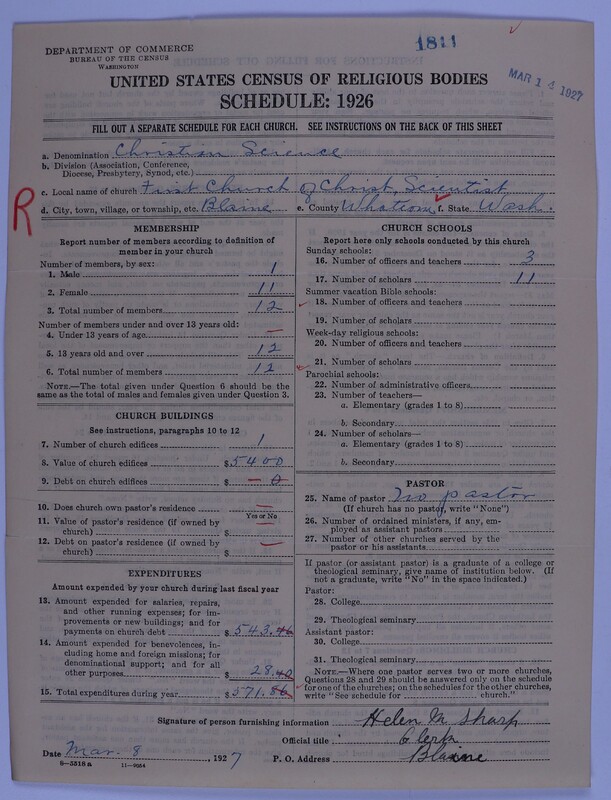 DEPARTMENT OF COMMERCE
BUREAU OF THE CENSUS
WASHINGTON
1811
MAR 14 1927
UNITED STATES CENSUS OF RELIGIOUS BODIES
SCHEDULE: 1926
FILL OUT A SEPARATE SCHEDULE FOR EACH CHURCH. SEE INSTRUCTIONS ON THE BACK OF THIS SHEET
a. Denomination Christian Science
b. Division (Association, Conference, Diocese, Presbytery, Synod, etc.)
c. Local name of church First Church of Christ, Scientist
R
d. City, town, village, or township, etc. Blaine e. County Whatcom f. State Wash.
MEMBERSHIP
Report number of members according to definition of
member in your church
Number of members, by sex:
1. Male 1
2. Female 11
3. Total number of members 12
Number of members under and over 13 years old:
4. Under 13 years of age —
5. 13 years old and over 12
6. Total number of members 12
NOTE.—The total given under Question 6 should be
same as the total of males and females given under Question 3.
CHURCH BUILDINGS
See instructions, paragraphs 10 to 12
7. Number of church edifices 1
8. Value of church edifices $5400
9. Debt on church edifices $ — 0
10. Does church own pastor's residence —
Yes or No
11. Value of pastor's residence (if owned by
church) $ —
12. Debt on pastor's residence (if owned by
church) $ —
EXPENDITURES
Amount expended by your church during last fiscal year
13. Amount expended for salaries, repairs,
and other running expenses; for im-
provements or new buildings; and for
payments on church debt $543.46
14. Amount expended for benevolences, in-
cluding home and foreign missions; for
denominational support; and for all
other purposes 28.40
15. Total expenditures during year $571.86
CHURCH SCHOOLS
Report here only schools conducted by this church
Sunday schools:
16. Number of officers and teachers 3
17. Number of scholars 11
Summer vacation Bible schools:
18. Number of officers and teachers
19. Number of scholars
Week-day religious schools:
20. Number of officers and teachers
21. Number of scholars
Parochial schools:
22. Number of administrative officers
23. Number of teachers—
a. Elementary (grades 1 to 8)
b. Secondary
24. Number of scholars—
a. Elementary (grades 1 to 8)
b. Secondary
PASTOR
25. Name of pastor no pastor
(If church has no pastor, write "None")
26. Number of ordained ministers, if any, em-
ployed as assistant pastors
27. Number of other churches served by the
pastor or his assistants
If pastor (or assistant pastor) is a graduate of a college or
theological seminary, give name of institution below. (If
not a graduate, write "No" in the space indicated.)
Pastor:
28. College
29. Theological seminary
Assistant pastor:
30. College
31. Theological seminary
NOTE.—Where one pastor serves two or more churches,
Questions 28 and 29 should be answered only on the schedule
for one of the churches; on the schedules for the other churches,
write "See schedule for church."
Signature of person furnishing information Helen M Sharp
Official title Clerk
Date Mar. 8, 1927 P. O. Address Blaine
8—5518 a 11—9054